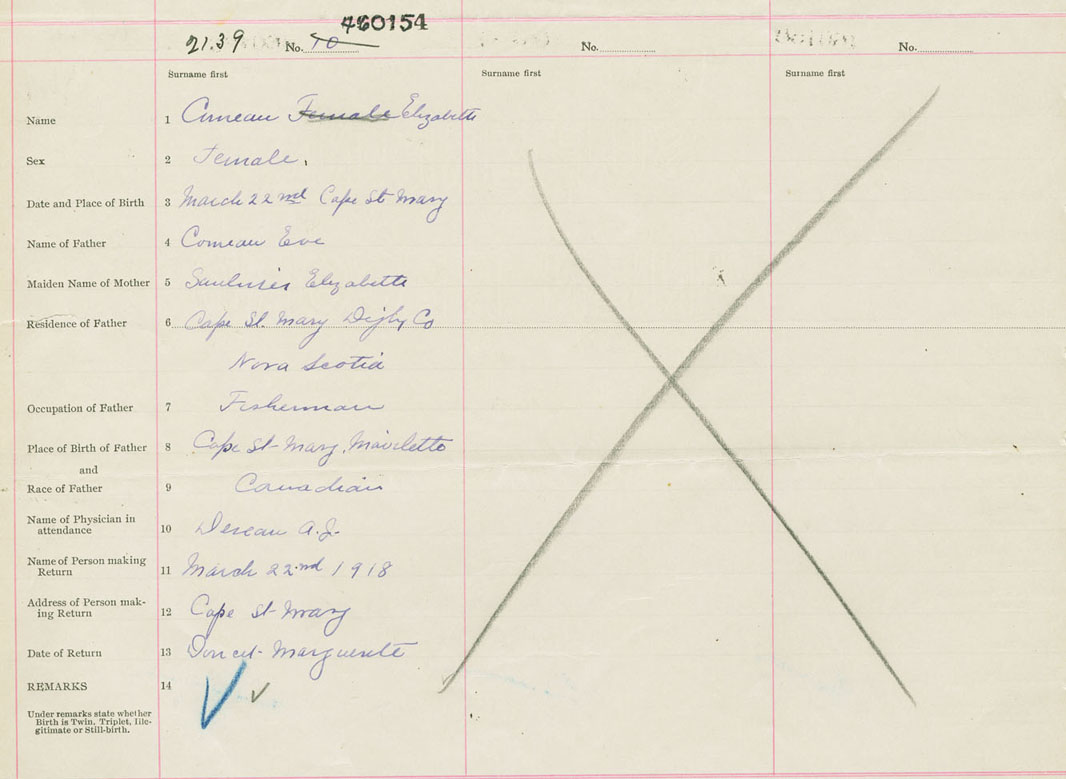 460154
21.39 No. 70 No. No.
Surname first Surname first Surname first
Name 1 Comeau Female Elizabette
Sex 2 Female.
Date and Place of Birth 3 March 22nd Cape St Mary
Name of Father 4 Comeau Eve
Maiden Name of Mother 5 Saulnier Elizabette
Residence of Father 6 Cape St. Mary Digby Co
Nova Scotia
Occupation of Father 7 Fisherman
Place of Birth of Father 8 Cape St Mary, Mavilette
and
Race of Father 9 Canadian
Name of Physician in
attendance 10 A.J.
Name of Person making
Return 11 March 22nd 1918
Address of Person mak-
ing Return 12 Cape St Mary
Date of Return 13 Doucet Marguerite
REMARKS 14
Under remarks state whether
Birth is Twin, Triplet, Ille-
gitimate or Still-birth.